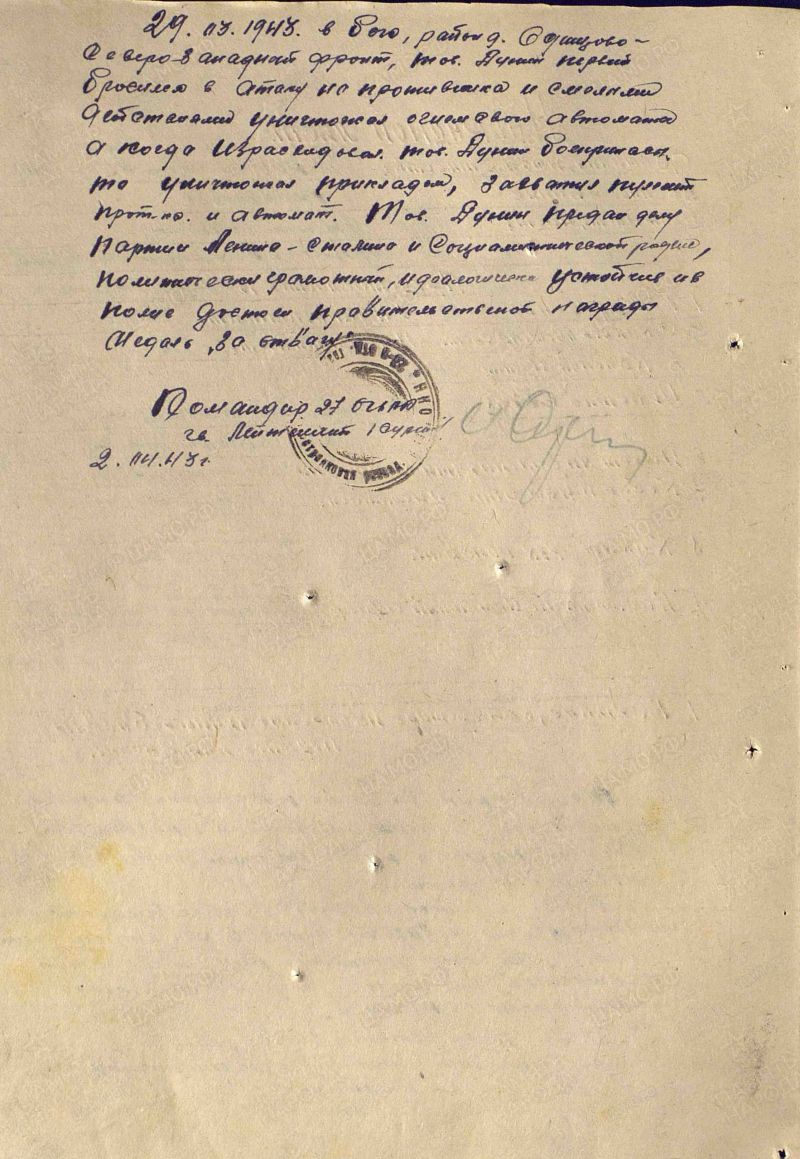 29. 03. 1943. в бою, район д. Одинцово-
Северо-Западный фронт, тов. Дунин первый
бросился в атаку на противника и смелыми
действиями уничтожал огнем своего автомата
а когда израсходовал тов. Дунин боеприпасы,
то уничтожал прикладом, захватил пулемет
прот-ка. и автомат. Тов. Дунин предан делу
партии Ленина - Сталина и Социалистической родине,
политически грамотный, идеологически устойчив и в
полне достоин правительственной награды
Медаль "За отвагу"
Командир 27
гв. Лейтенант
2. 04. 43 г.
НКО
стрелковая